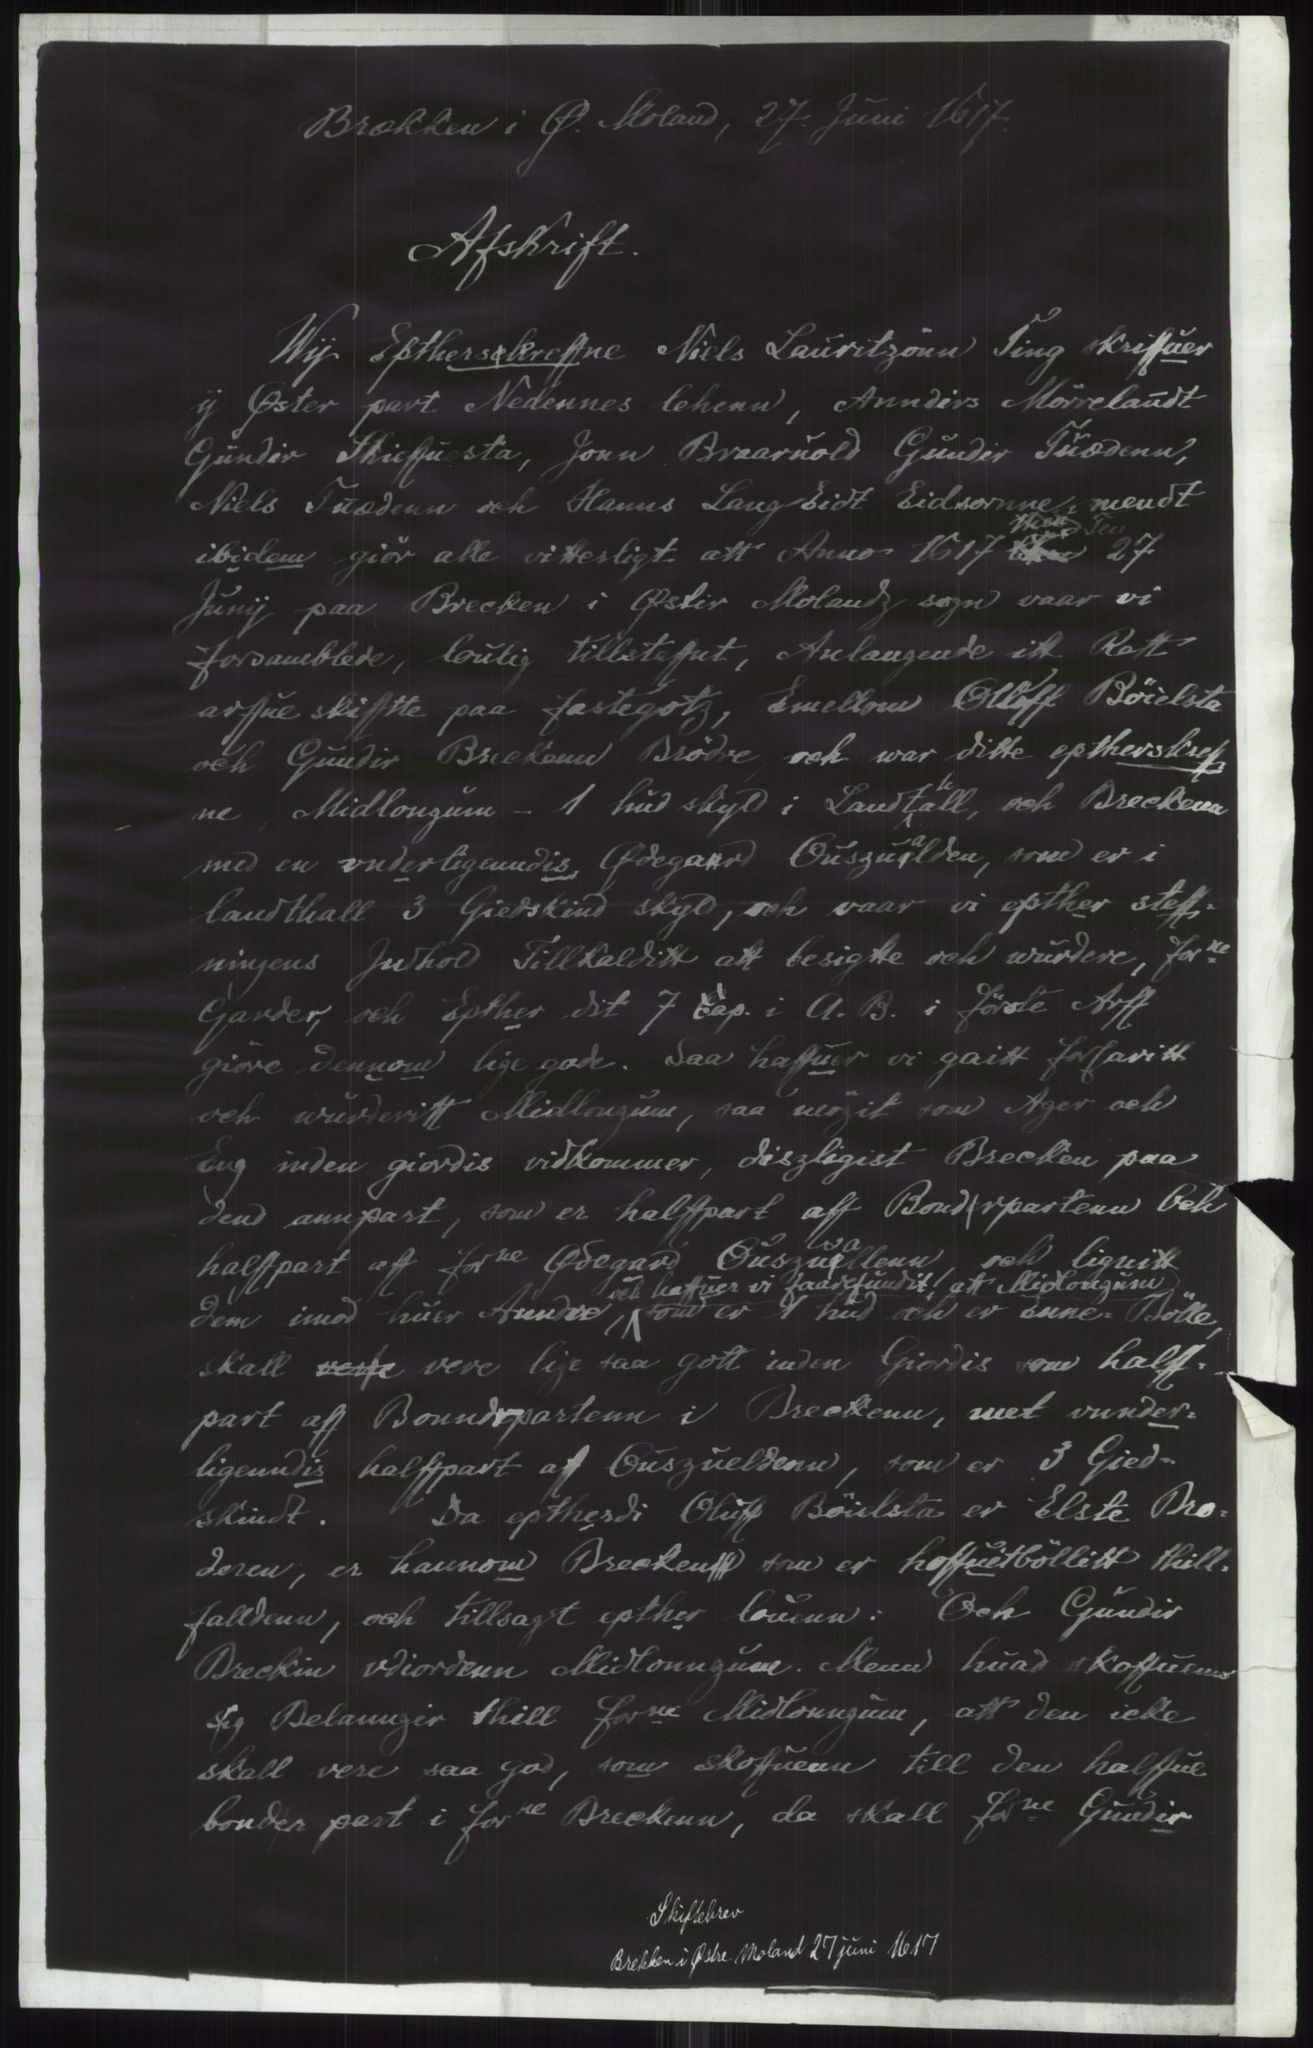 Brækken i Ø. Moland, 27. Juni 1617.
Afskrift.
Wij Eptherschreffne Niels Lauritzönn Ting skriffuer
ij Øster part Nedennes lehenn, Anndirs Mörrelandt
Gundir Skieffuesta, Jonn Braaruold Gundir Tuedenn,
Niels Tuedenn och Hanns Lang Eidt Eidsornne-mendt
ibidem giör alle vitterligt att Anno 1617 thenn 27
Junij paa Brecken i Østir Molandz sogn vaar vi
forsamblede, loulig tillsteffnt, Anlangende itt Rett
arffue skifftte paa fastegotz, Emellom Oluff Böielsta
och Gundir Breckenn Brödre, och war ditte eptherskreff
ne, Midlongum - 1 hud skyld i Landthall, och Breckenn
med en vnderligenndis Ødegaard Ouszualden, som er i
landthall 3 Giedskind skyld, och vaar vi epther steff-
ningens Indhold Tillkalditt att besigtte och wurdere, forne
Garder, och Epther dit 7 Cap. i A. B. i förste Arff
giöre dennom lige gode. Saa haffuer vi gaitt forfaritt
och wurderitt Midlongum, saa mögit som Ager och
Eng inden giordis vidkommer, diszligist Brecken paa
dend annpart, som er halffpart aff Bondrpartenn Och
halffpart aff forne Ødegard Ouszuellenn, och lignitt
och haffuer vi faarefundit, att Midlongum
dem imod huer Anndre, som er 1 hud och er enne-Bölle,
skall vere lige saa gott inden Giordis som halff-
part aff Bonndrpartenn i Breckenn, met vnnder-
ligenndis halffpart aff Ouszueldenn, som er 3 Gied-
skindt. Da eptherdi Oluff Böielsta er Elste Bro-
deren, er hannom Breckenn som er hoffuetböllitt thill-
falldenn, och tillsagt epther louenn. Och Gundir
Breckin vdiordenn Midlonngum. Menn huad skoffuenn
sig Belanngir thill forne Midlonngum, att den icke
skall vere saa god, som skoffuenn till den halffue
bonder part i forne Breckenn, da skall forne Gundir
Skiftebrev
Brekken i Østre Moland 27 juni 1617